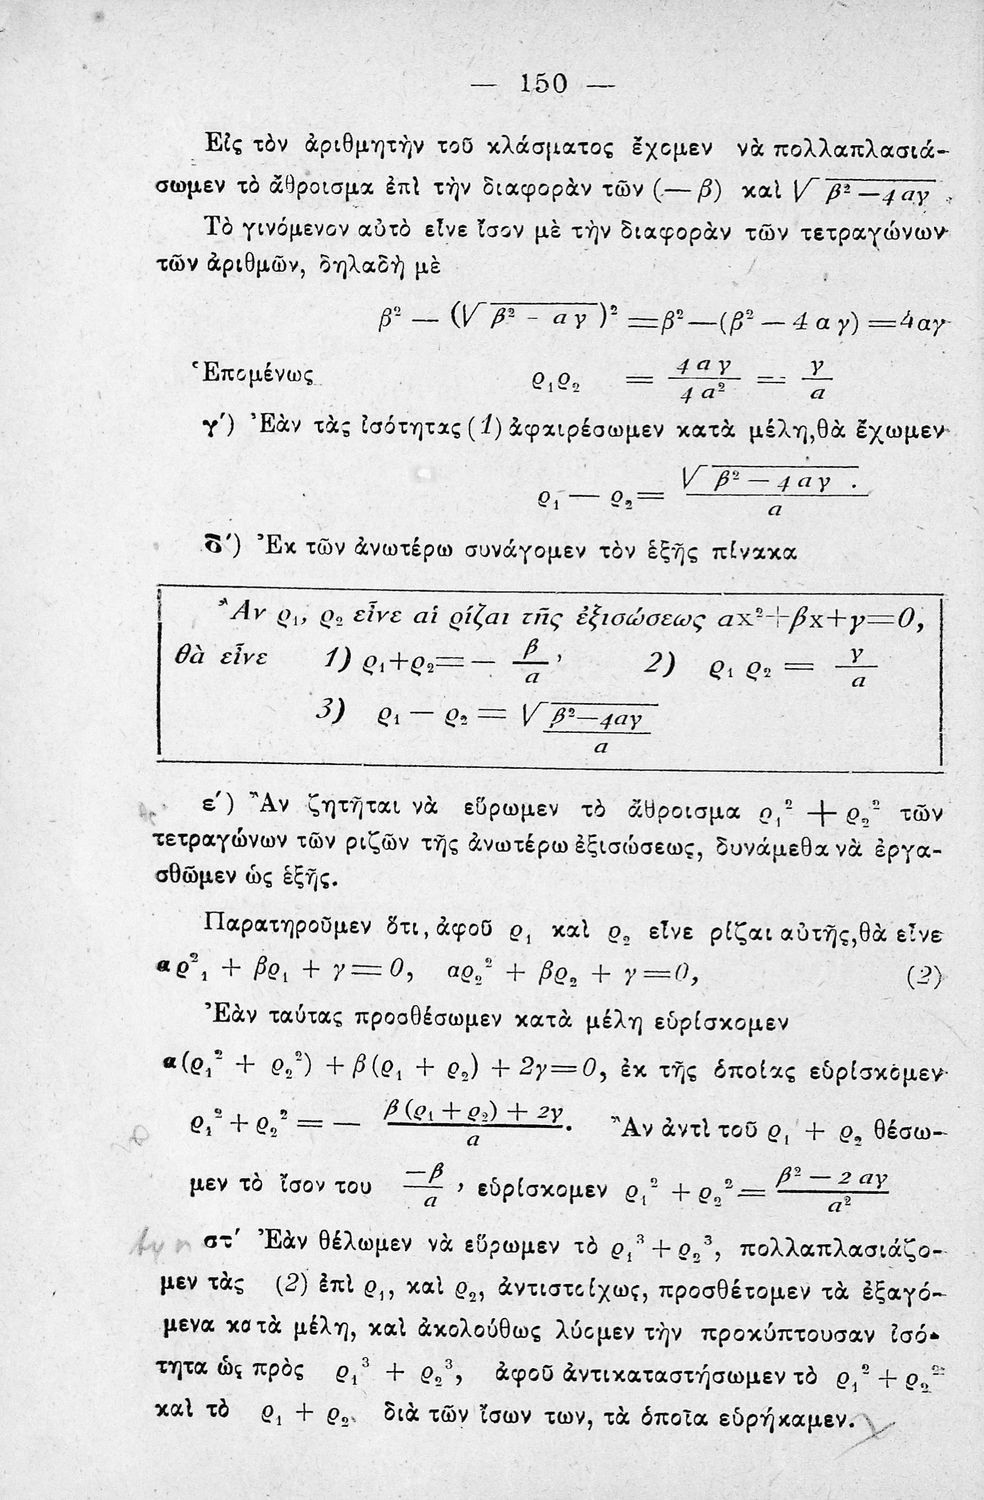 — 150 —
Εἰς τὸν ἀριθμητὴν τοῦ κλάσματος ἔχομεν νὰ πολλαπλασιά-
σωμεν τὸ ἄθροισμα ἐπὶ τὴν διαφορὰν τῶν (— β) καὶ √ β² — 4 αγ .
Τὸ γινόμενον αὐτὸ εἶνε ἴσον μὲ τὴν διαφορὰν τῶν τετραγώνων
τῶν ἀριθμῶν, δηλαδὴ μὲ
β² — (√ β² - αγ )² = β² — (β² — 4 α γ) = 4αγ
Ἑπομένως ρ₁ρ₂ = 4 α γ / 4 α² = γ / α
γ΄) Ἐὰν τὰς ἰσότητας (1) ἀφαιρέσωμεν κατὰ μέλη, θὰ ἔχωμεν
ρ₁ — ρ₂ = √ β² — 4 αγ . / α
δ΄) Ἐκ τῶν ἀνωτέρω συνάγομεν τὸν ἑξῆς πίνακα
Ἂν ρ₁, ρ₂ εἶνε αἱ ρίζαι τῆς ἐξισώσεως αx²+βx+γ=0,
θὰ εἶνε 1) ρ₁+ρ₂ = — β / α , 2) ρ₁ ρ₂ = γ / α
3) ρ₁ — ρ₂ = √ β²—4αγ / α
ε΄) Ἂν ζητῆται νὰ εὕρωμεν τὸ ἄθροισμα ρ₁² + ρ₂² τῶν
τετραγώνων τῶν ριζῶν τῆς ἀνωτέρω ἐξισώσεως, δυνάμεθα νὰ ἐργα-
σθῶμεν ὡς ἑξῆς.
Παρατηροῦμεν ὅτι, ἀφοῦ ρ₁ καὶ ρ₂ εἶνε ρίζαι αὐτῆς, θὰ εἶνε
αρ²₁ + βρ₁ + γ = 0, αρ₂² + βρ₂ + γ = 0, (2)
Ἐὰν ταύτας προσθέσωμεν κατὰ μέλη εὑρίσκομεν
α(ρ₁² + ρ₂²) + β(ρ₁ + ρ₂) + 2γ = 0, ἐκ τῆς ὁποίας εὑρίσκομεν
ρ₁² + ρ₂² = — β (ρ₁ + ρ₂) + 2γ / α . Ἂν ἀντὶ τοῦ ρ₁ + ρ₂ θέσω-
μεν τὸ ἴσον του —β / α , εὑρίσκομεν ρ₁² + ρ₂² = β² — 2 αγ / α²
στ΄ Ἐὰν θέλωμεν νὰ εὕρωμεν τὸ ρ₁³ + ρ₂³, πολλαπλασιάζο-
μεν τὰς (2) ἐπὶ ρ₁, καὶ ρ₂, ἀντιστοίχως, προσθέτομεν τὰ ἐξαγό-
μενα κατὰ μέλη, καὶ ἀκολούθως λύομεν τὴν προκύπτουσαν ἰσό-
τητα ὡς πρὸς ρ₁³ + ρ₂³, ἀφοῦ ἀντικαταστήσωμεν τὸ ρ₁² + ρ₂²
καὶ τὸ ρ₁ + ρ₂ διὰ τῶν ἴσων των, τὰ ὁποῖα εὑρήκαμεν.